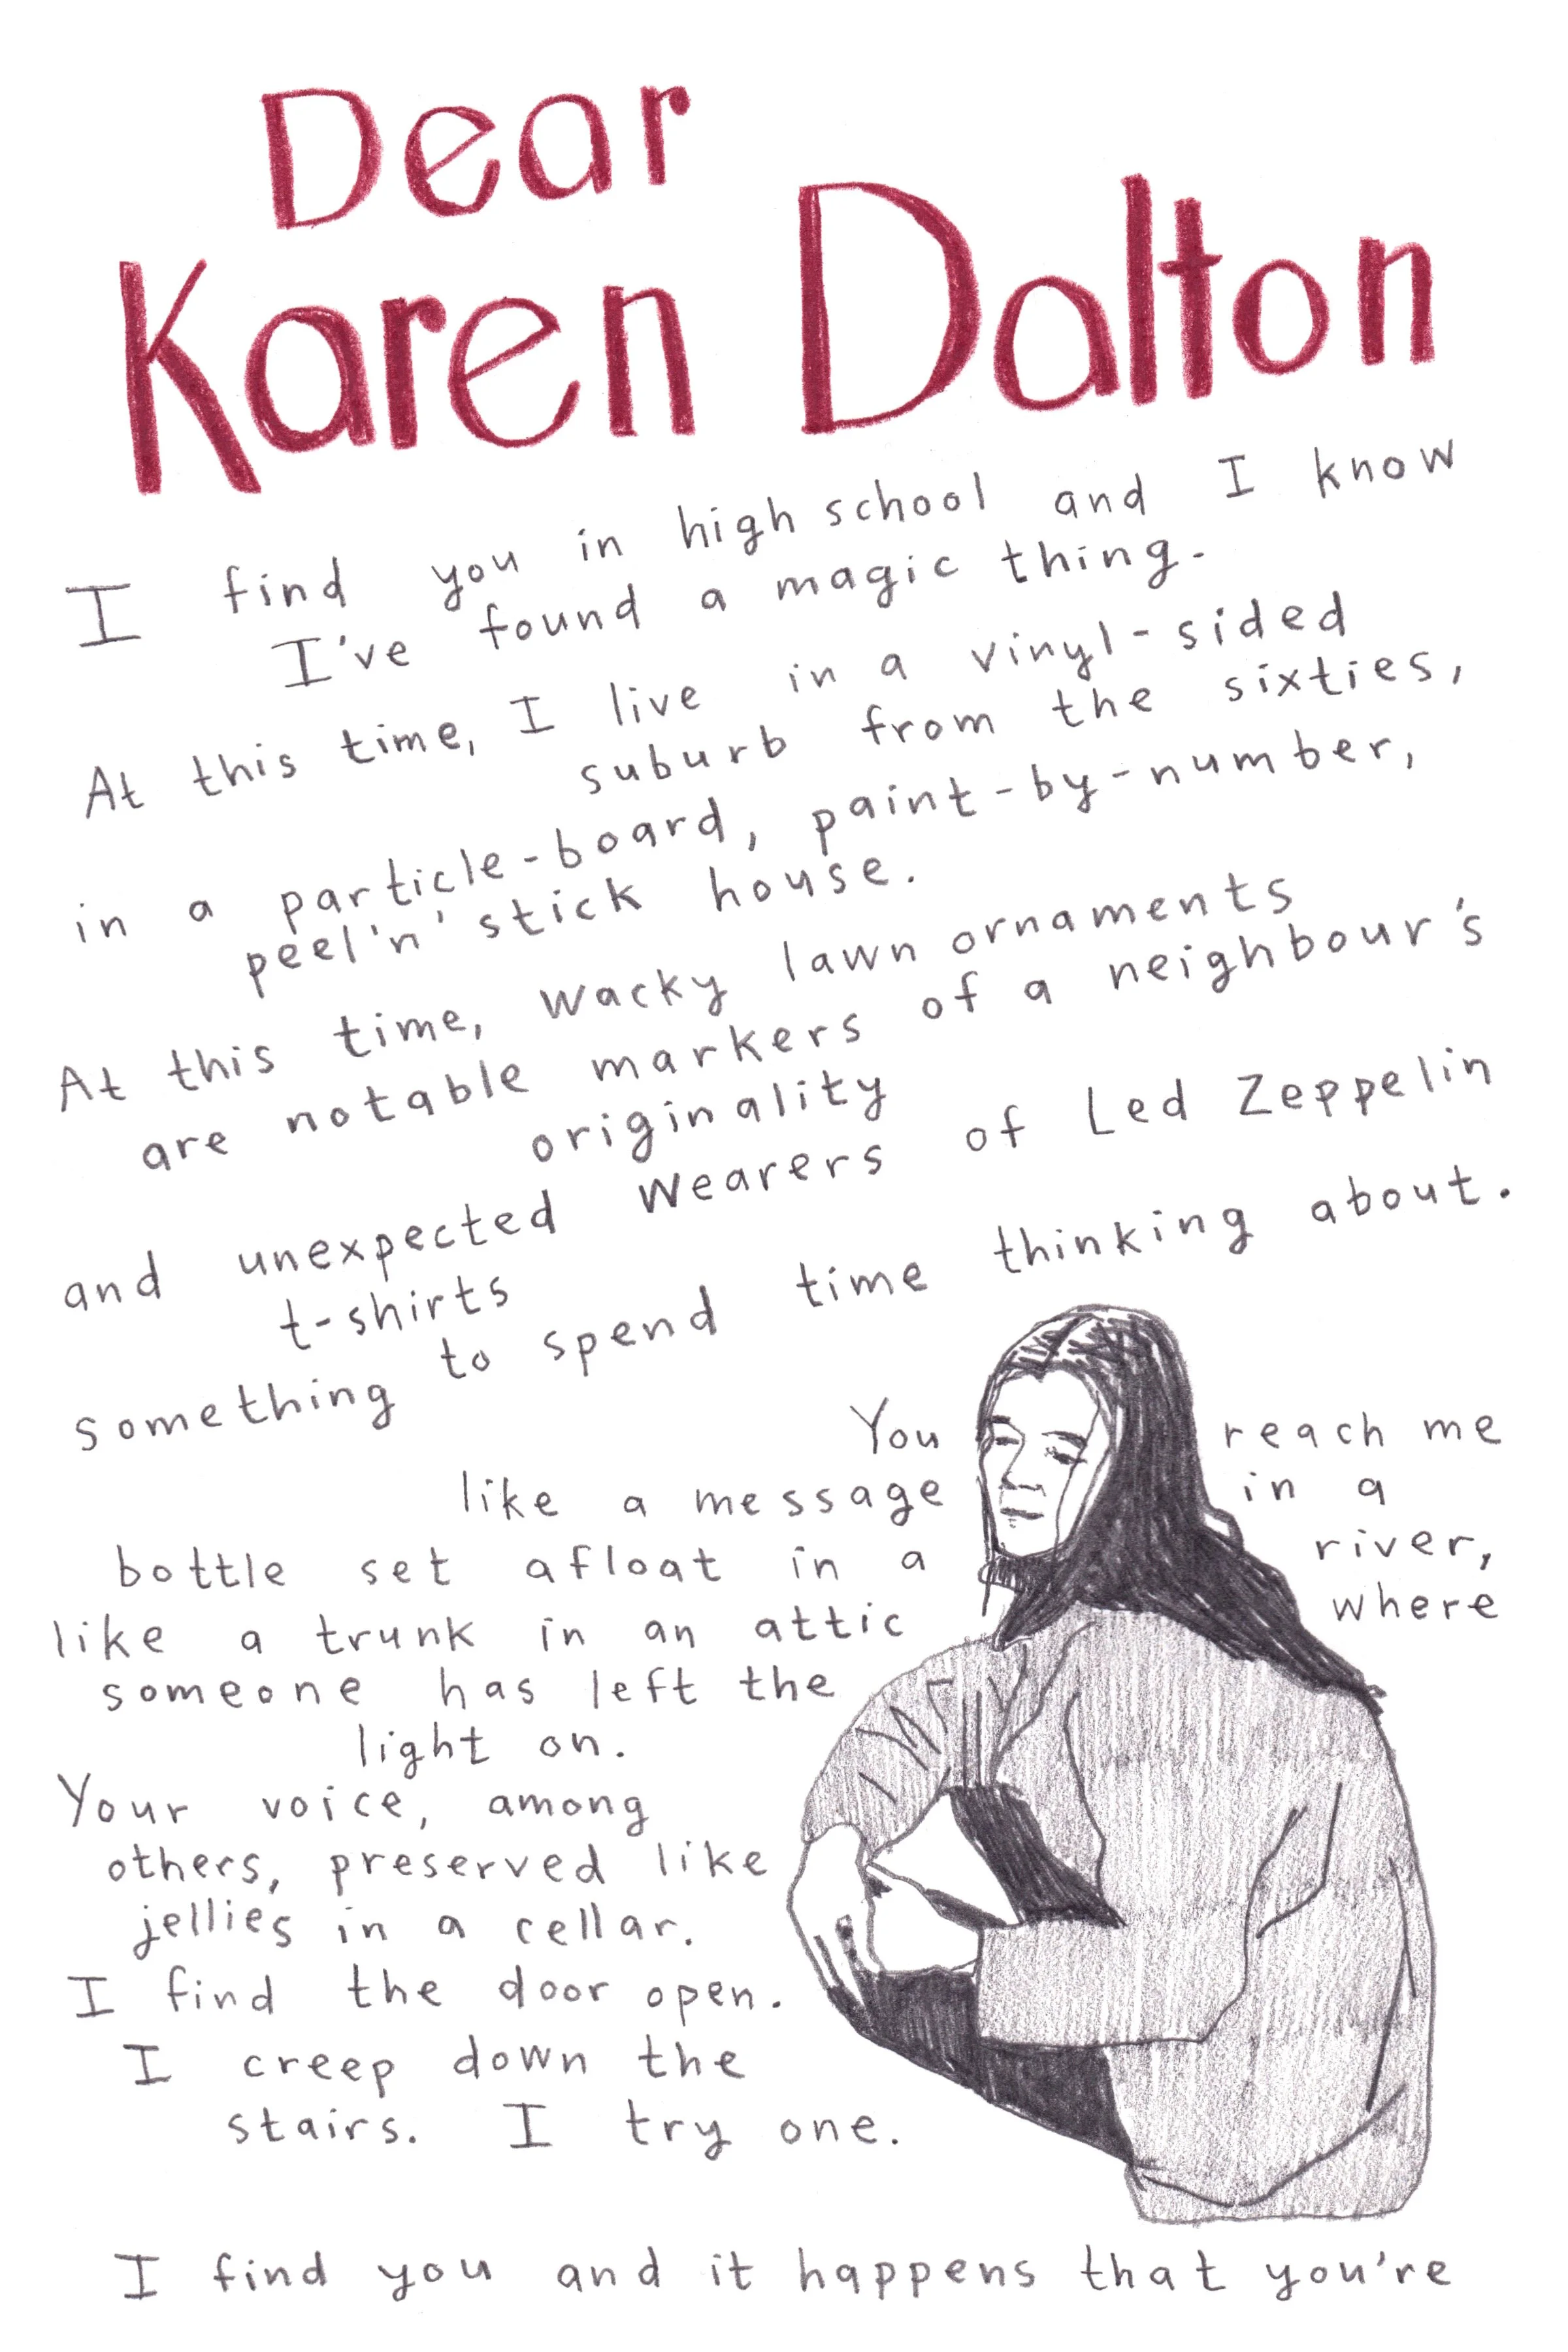 Dear
Karen Dalton
I find you in high school and I know
I've found a magic thing.
At this time, I live in a vinyl-sided
suburb from the sixties,
in a particle-board, paint-by-number,
peel 'n' stick house.
At this time, wacky lawn ornaments
are notable markers of a neighbour's
originality
and unexpected wearers of Led Zeppelin
t-shirts
something to spend time thinking about.
You reach me
like a message in a
bottle set afloat in a river,
like a trunk in an attic where
someone has left the
light on.
Your voice, among
others, preserved like
jellies in a cellar.
I find the door open.
I creep down the
stairs. I try one.
I find you and it happens that you're